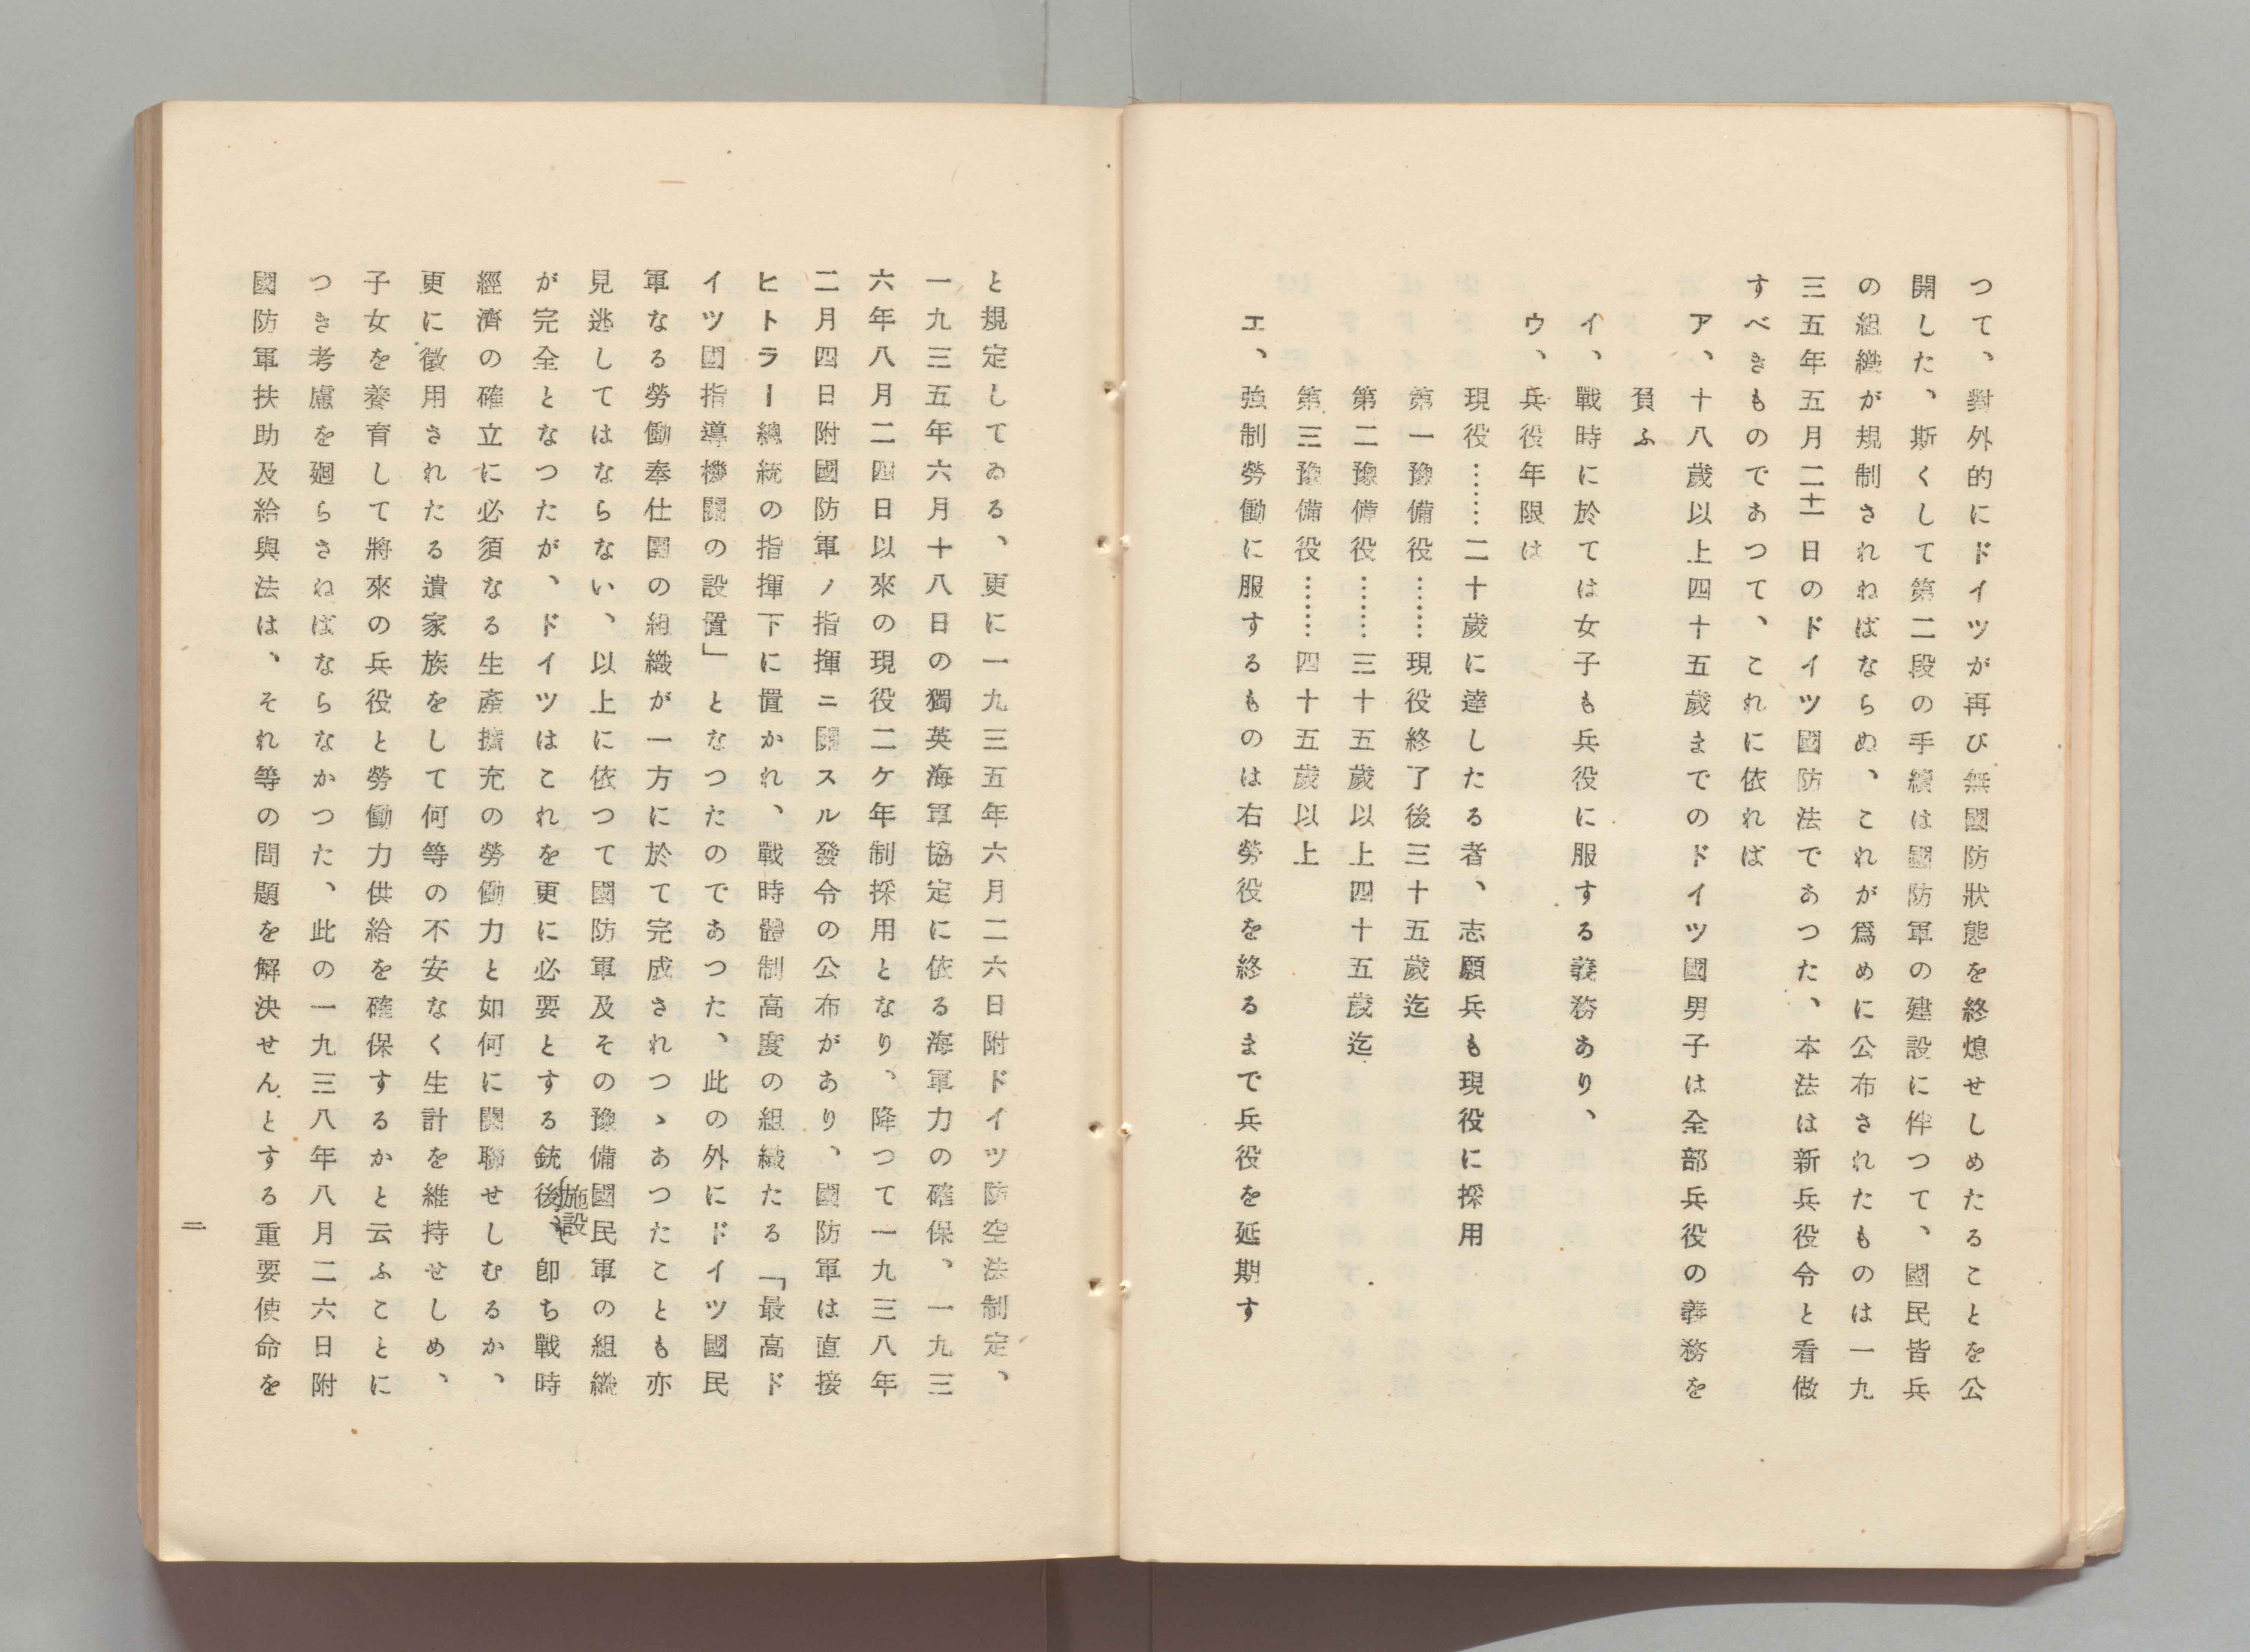 つて、對外的にドイツが再び無國防狀態を終熄せしめたることを公
開した、斯くして第二段の手續は國防軍の建設に伴つて、國民皆兵
の組織が規制されねばならぬ、これが爲めに公布されたものは一九
三五年五月二十一日のドイツ國防法であつた、本法は新兵役令と看做
すべきものであつて、これに依れば
ア、十八歲以上四十五歲までのドイツ國男子は全部兵役の義務を
負ふ
イ、戰時に於ては女子も兵役に服する義務あり、
ウ、兵役年限は
現役……二十歲に達したる者、志願兵も現役に採用
第一豫備役……現役終了後三十五歲迄
第二豫備役……三十五歲以上四十五歲迄
第三豫備役……四十五歲以上
エ、強制勞働に服するものは右勞役を終るまで兵役を延期す
と規定してゐる、更に一九三五年六月二六日附ドイツ防空法制定、
一九三五年六月十八日の獨英海軍協定に依る海軍力の確保、一九三
六年八月二四日以來の現役二ケ年制採用となり、降つて一九三八年
二月四日附國防軍ノ指揮ニ關スル發令の公布があり、國防軍は直接
ヒトラー總統の指揮下に置かれ、戰時體制高度の組織たる「最高ド
イツ國指導機關の設置」となつたのであつた、此の外にドイツ國民
軍なる勞働奉仕團の組織が一方に於て完成されつゝあつたことも亦
見逃してはならない、以上に依つて國防軍及その豫備國民軍の組織
が完全となつたが、ドイツはこれを更に必要とする銃後施設、卽ち戰時
經濟の確立に必須なる生產擴充の勞働力と如何に關聯せしむるか、
更に徵用されたる遺家族をして何等の不安なく生計を維持せしめ、
子女を養育して將來の兵役と勞働力供給を確保するかと云ふことに
つき考慮を廻らさねばならなかつた、此の一九三八年八月二六日附
國防軍扶助及給與法は、それ等の問題を解決せんとする重要使命を
二